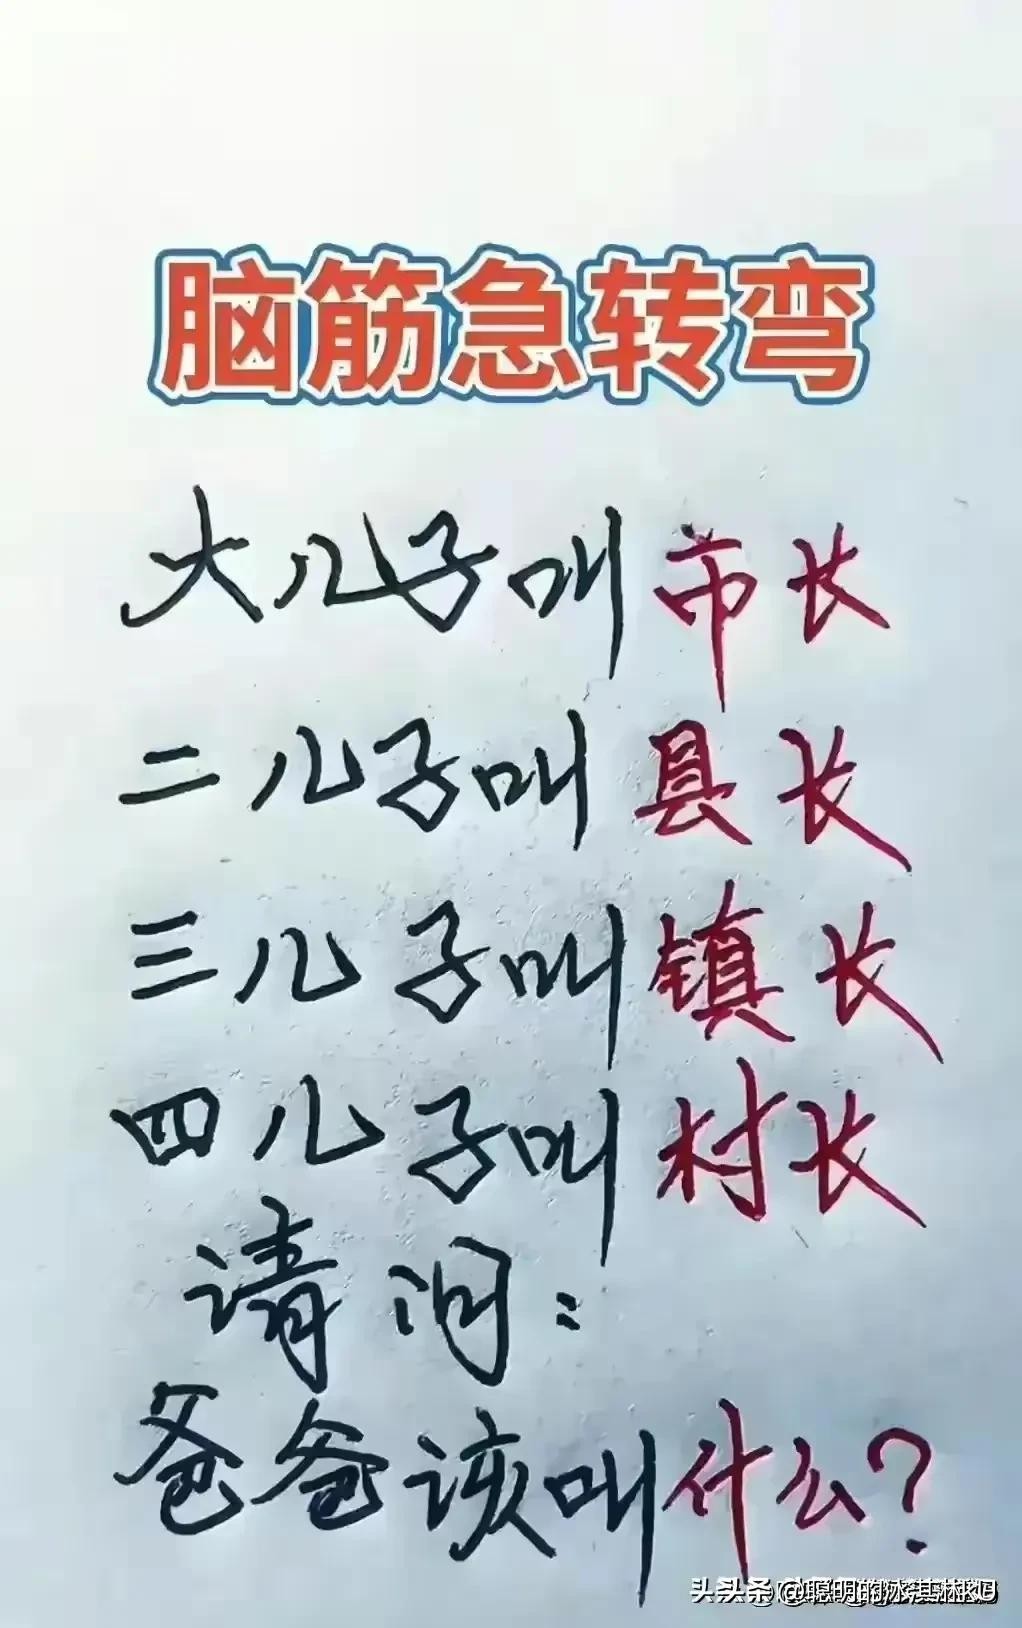 脑筋急转弯
大儿子叫市长
二儿子叫县长
三儿子叫镇长
四儿子叫村长
请问:
爸爸该叫什么?
头条 @聪明的冰淇淋KU